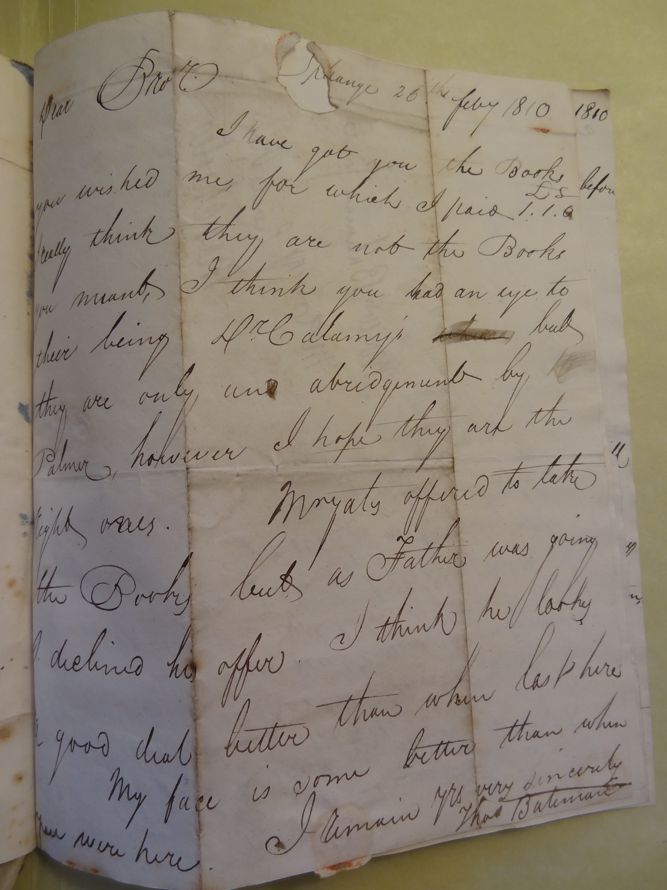 Dear Bror. Exchange 26th feby 1810 1810
I have got you the Books
you wished me, for which I paid £ s 1.1.0
really think they are not the Books
you meant, I think you had an eye to
their being Dr. Calamy's but
they are only an abridgement by
Palmer, however I hope they are the
right ones. Mryats offered to take
the Books but as Father was going
I declined his offer. I think he looks
a good deal better than when last here
My face is some better than when
you were here. I remain yrs very sincerely
Thos Bateman